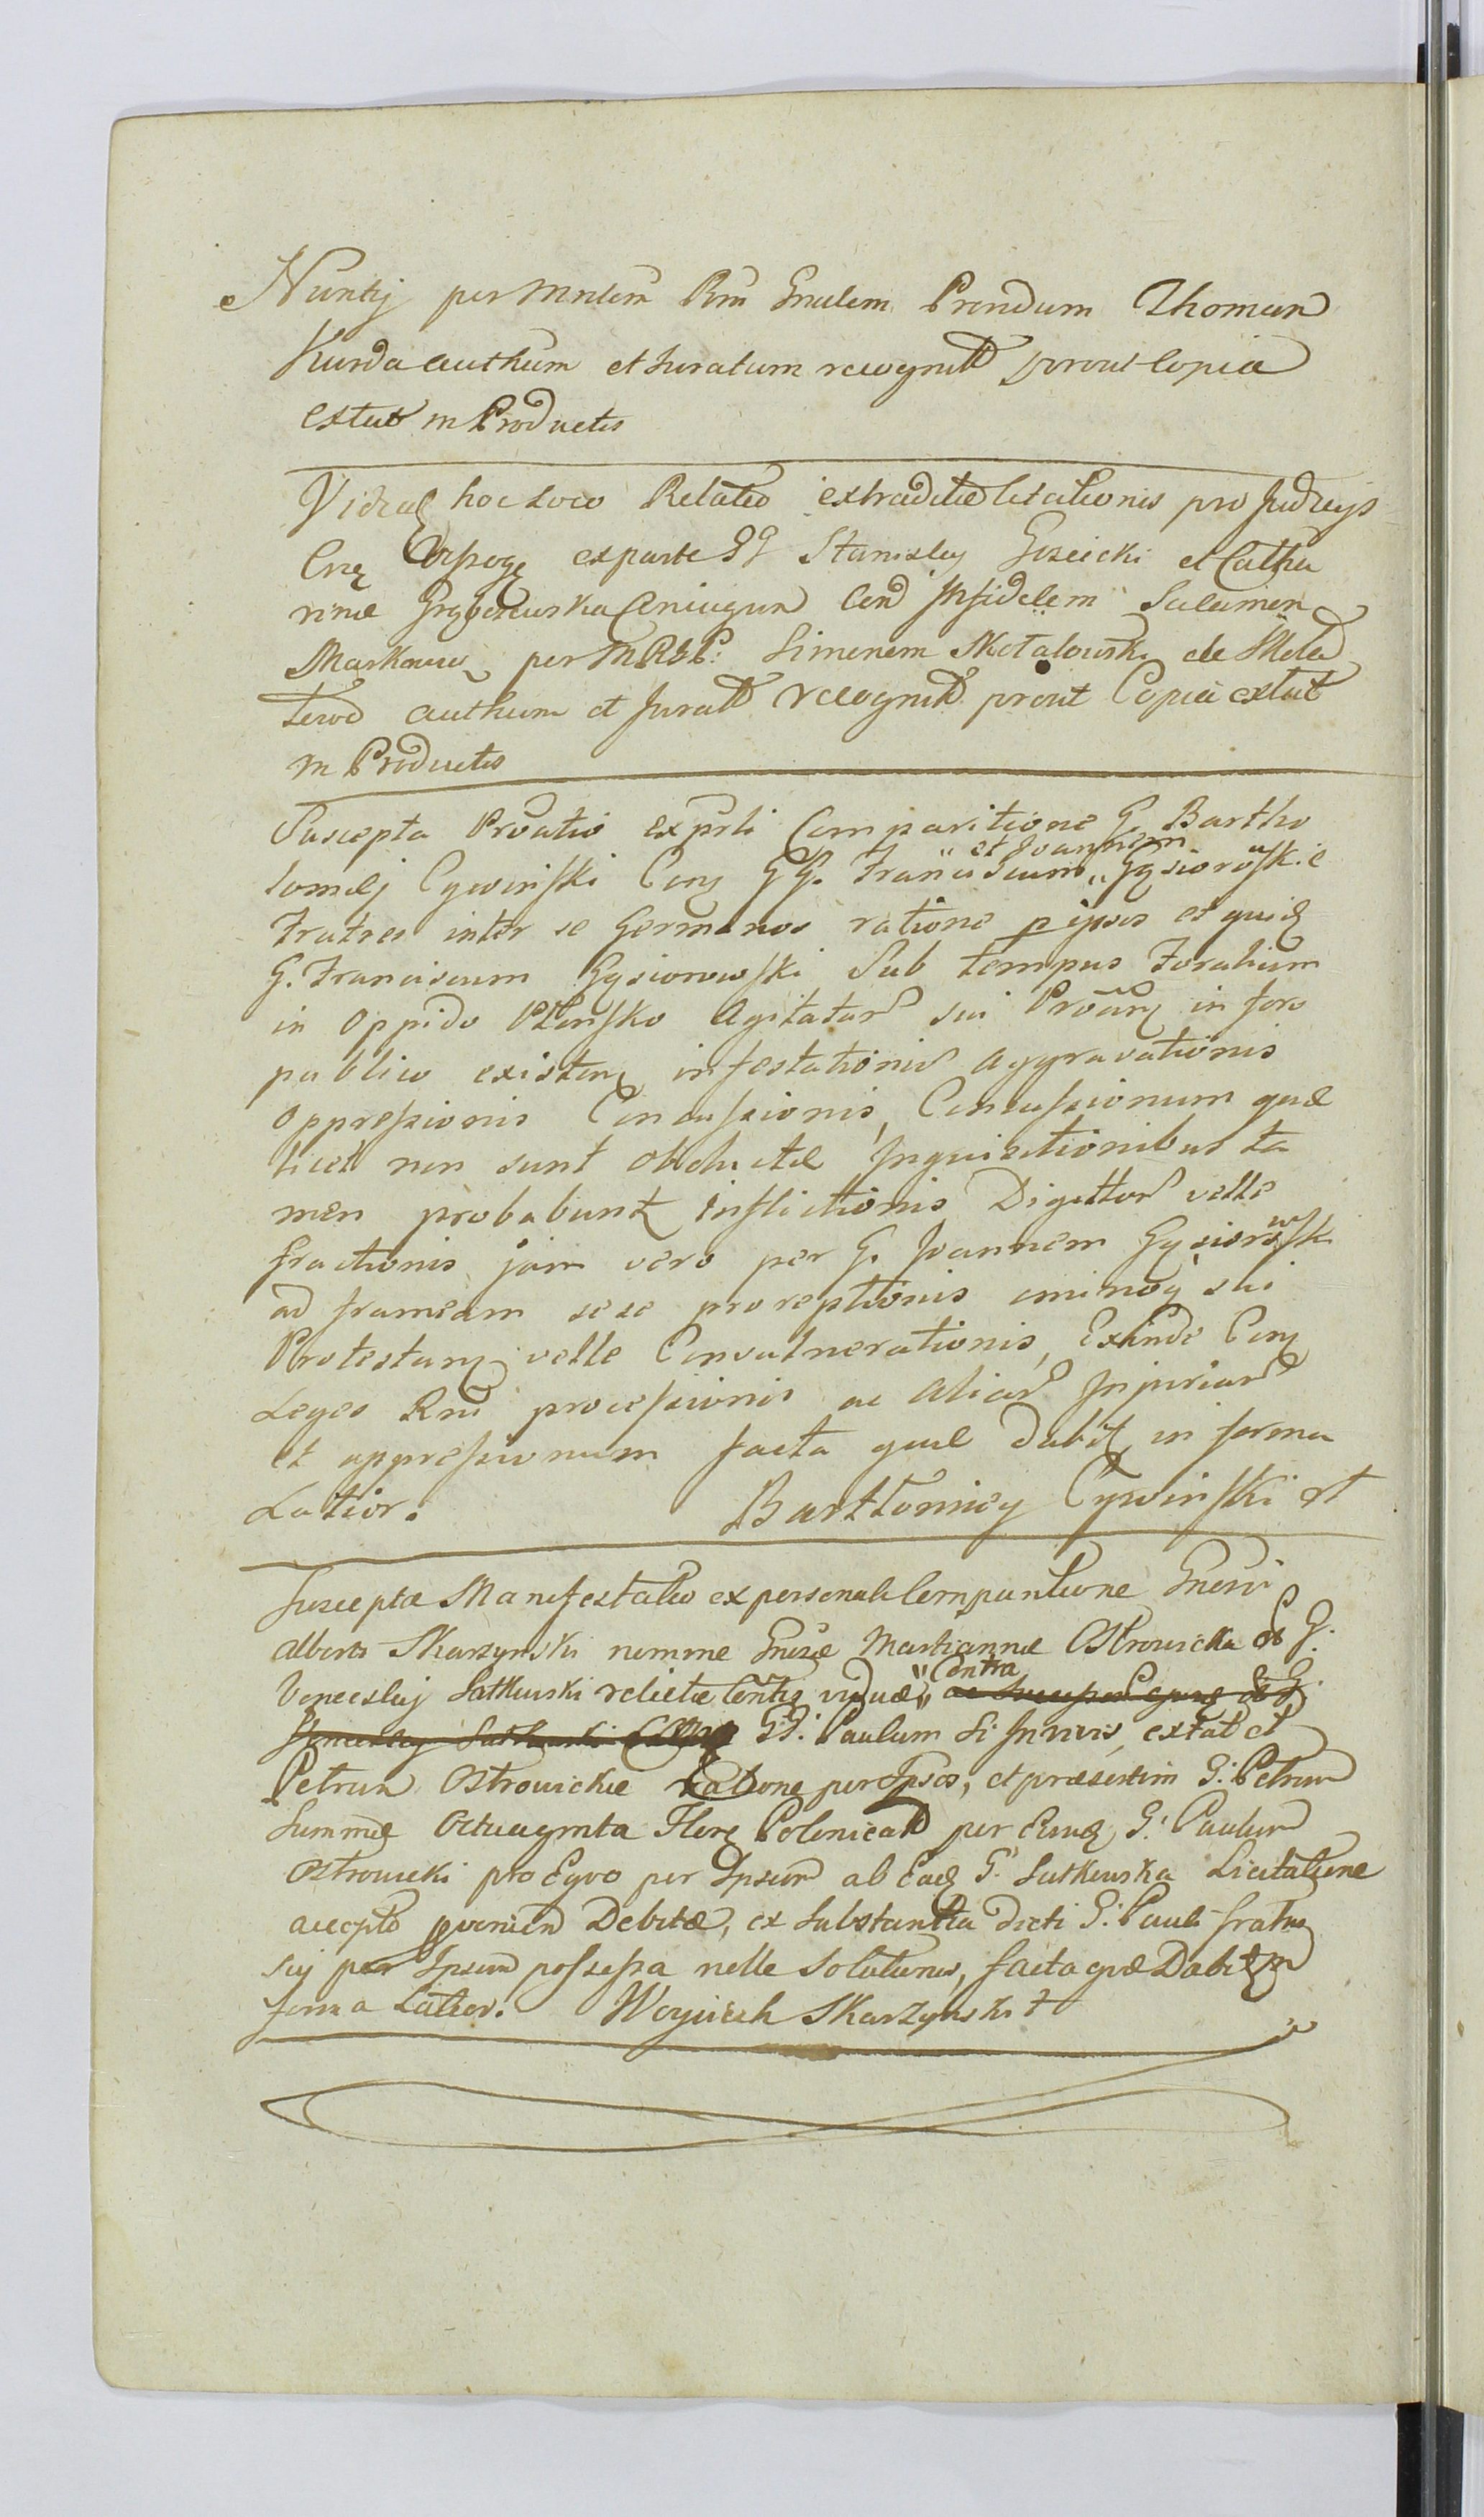 Nuntij per Mnlem Rni Gnalem Prondum Thomam
Kurda authum et Juratum recognitt prout Copia
extat in Productis
Videatz hoc Loco Relatio extraditae Citationis pro Judicijs
exparte GG Stanislaj Goscicki et Catha
rinae Conjugum Con Infidelem Salamon
Markowicz per MRGP: Simonem de
authum et Juratt recognitt prout Copia extat
in Productis
Suscepta Prõatio ex prsli Comparitione G. Bartho
lomej Cywinski Con GG. Franciscum „et Joannem„ Gąsiorowskie
Fratres inter se Germanos ratione p ipsos et quid
G. Franciscum Gąsiorowski Sub tempus Foralium
in Oppido Płonsko Agitatar sui Proan in foro
publico existen infestationis aggravationis
Oppressionis Concussionis, Concussionum quae
licet non sunt obductae Inquisitionibus ta
men probabuntz inflictionis Digittor velle
fractionis jam vero per G. Joannem Gąsiorowski
ad frameam sese proreptionis sui
Protestan velle Convulnerationis, Exinde Con
Leges Rni processionis ac aliar Injuriar
et oppressionum facta quae dabitz in forma
Latior. Bartłomiey Cywinski rt
Suscepta Manifestatio ex personali Comparitione Gnerosi
Alberti Skarzynski nomine Gnosae Mariannae Ostrowicka ol G.
Venceslaj Sutkowski relictae viduae „Contra„
GG. Paulum Si In vivis extat et
Petrum Ostrowickie ratione per Ipsos, et praesertim G. Petrum
Summae Octuaginta Flor Polonical per G. Paulum
Ostrowicki pro Equo per Ipsum ab Ead G. Sutkowska Licitatione
accepto Debitae, ex Substantia dicti G. Pauli fratris
sui per Ipsum possessa nolle Solutionis, facta quae Dabitz in
forma Latior. Woyciech Skarzynski rt